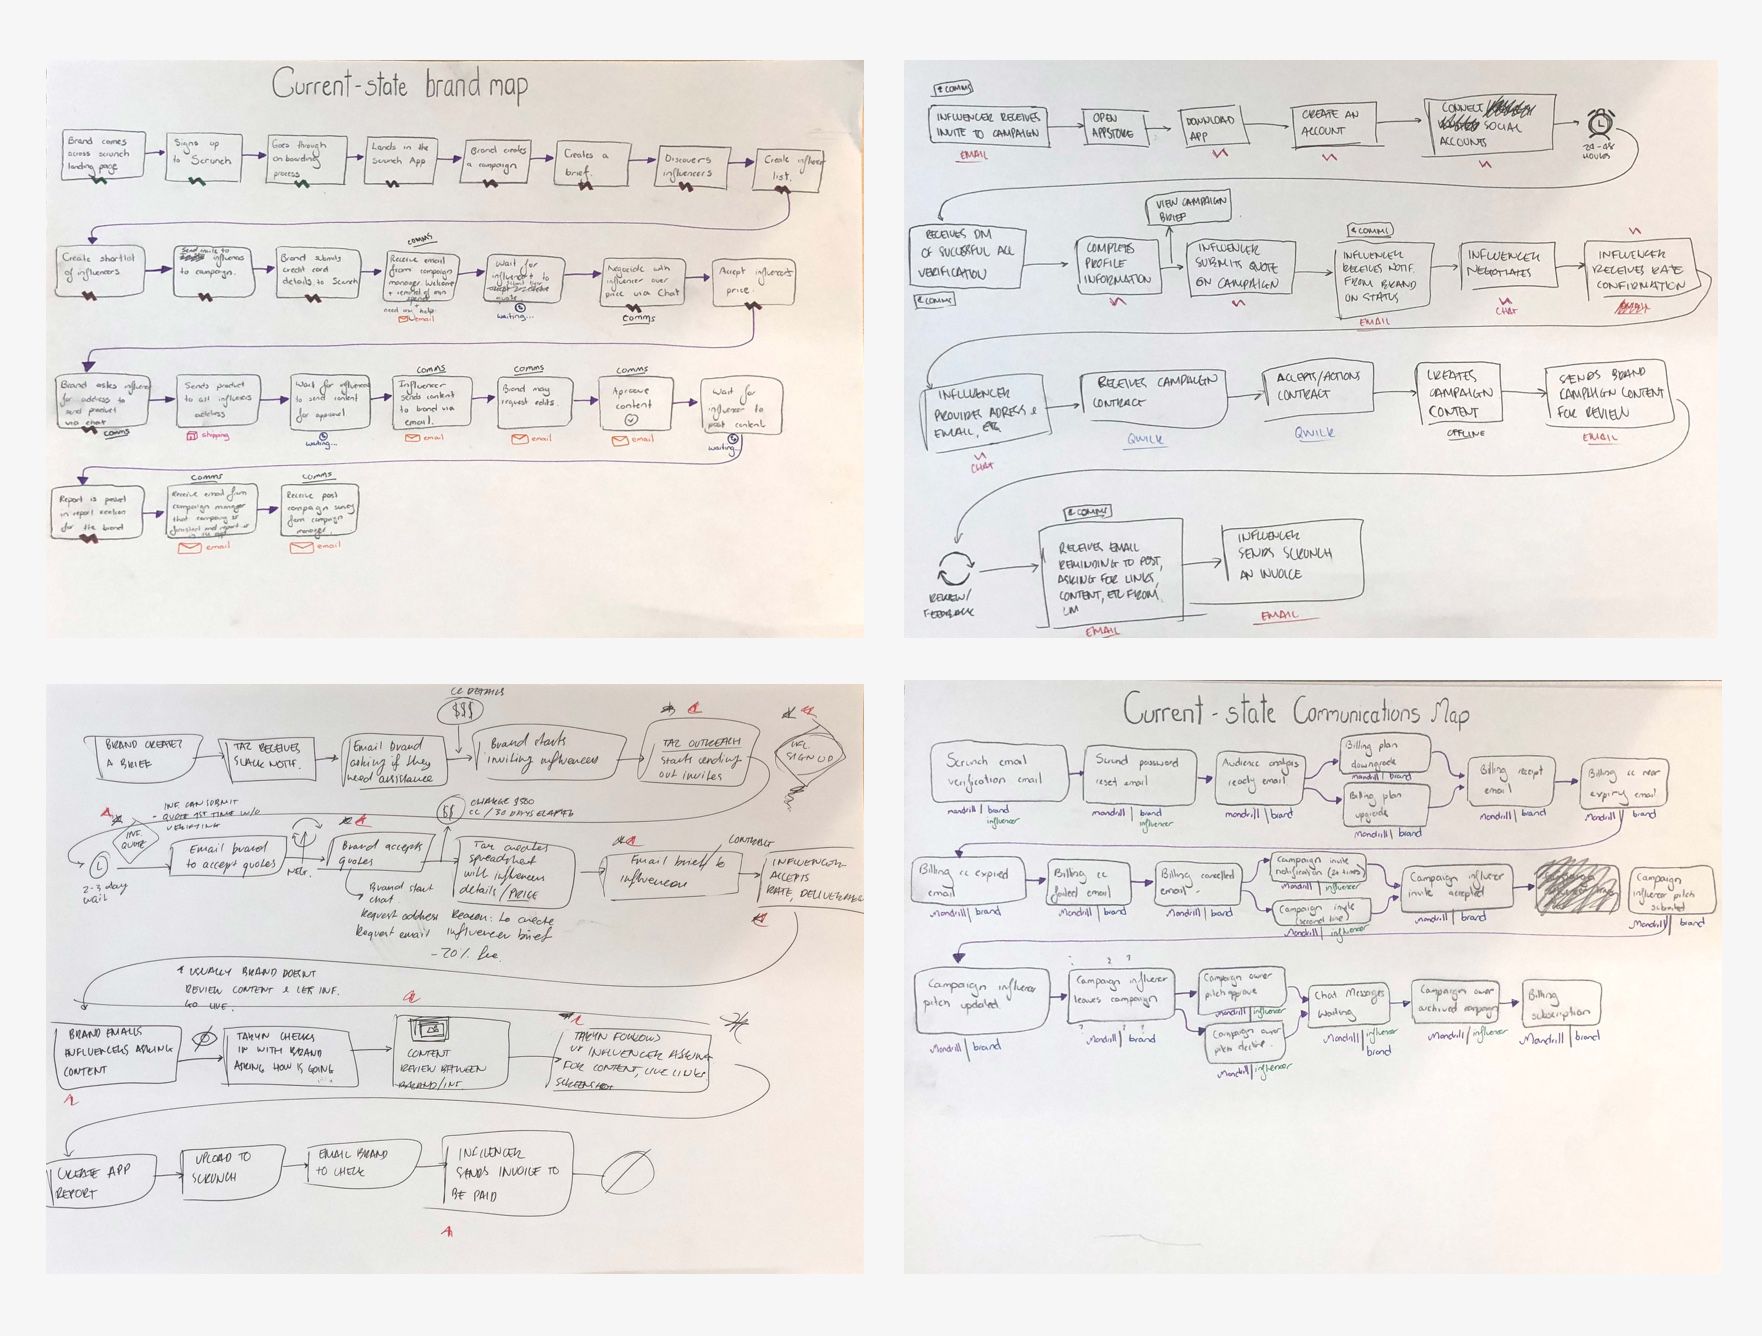 Current-state brand map
Brand comes
across scrunch
landing page
Signs up
to Scrunch
Goes through
onboarding
process
Lands in the
Scrunch App
Brand creates
a campaign
Creates a
brief.
Discovers
influencers
Create influencer
list.
Create shortlist
of influencers
Send invite to
influencers
to campaign.
Brand submits
credit card
details to Scrunch
comms
Receive email
from campaign
manager. Welcome
+ reminder of min
spend
+
need any help.
email
Wait for
influencer to
quote
waiting...
Negociate with
influencer over
price via Chat
comms
Accept influencers
price.
Brand askes influencer
for address to
send product
via chat
comms
Sends product
to all influencers
address
shipping
Wait for influencer
to send content
for approval
waiting...
comms
Influencer
sends content
to brand via
email.
email
comms
Brand may
request edits.
email
comms
Approve
content
email
Wait for
influencer to
post content
waiting...
Report is posted
in report section
for the brand
comms
Receive email from
campaign manager
that campaign is
finished and report is
in the app
email
comms
Receive post
campaign survey
from campaign
manager.
email
COMMS
INFLUENCER RECEIVES
INVITE TO CAMPAIGN
EMAIL
OPEN
APPSTORE
DOWNLOAD
APP
CREATE AN
ACCOUNT
CONNECT
SOCIAL
ACCOUNTS
24-48
HOURS
RECEIVES DM
OF SUCCESSFUL ACC
VERIFICATION
COMMS
COMPLETES
PROFILE
INFORMATION
VIEW CAMPAIGN
BRIEF
INFLUENCER
SUBMITS QUOTE
ON CAMPAIGN
COMMS
INFLUENCER
RECEIVES NOTIF.
FROM BRAND
ON STATUS
EMAIL
INFLUENCER
NEGOTIATES
CHAT
INFLUENCER
RECEIVES RATE
CONFIRMATION
INFLUENCER
PROVIDES ADRESS &
EMAIL, ETC
CHAT
RECEIVES CAMPAIGN
CONTRACT
QWILR
ACCEPTS/ACTIONS
CONTRACT
QWILR
CREATES
CAMPAIGN
CONTENT
OFFLINE
SENDS BRAND
CAMPAIGN CONTENT
FOR REVIEW
EMAIL
REVIEW/
FEEDBACK
COMMS
RECEIVES EMAIL
REMINDING TO POST,
ASKING FOR LINKS,
CONTENT, ETC FROM
CM
EMAIL
INFLUENCER
SENDS SCRUNCH
AN INVOICE
EMAIL
CC DETAILS
$$$
BRAND CREATES
A BRIEF
TAZ RECEIVES
SLACK NOTIF.
Email brand
asking if they
need assistance
Brand starts
inviting influencers
TAZ OUTREACH
starts sending
out invites
INFL.
SIGN UP
INF. CAN SUBMIT
QUOTE 1ST TIME W/O
VERIFYING
INF.
QUOTE
2-3 day
wait
Email brand
to accept quotes
NEG.
Brand accepts
quotes
Brand start
chat
Request address
Request email
$$
CHARGE $500
CC / 30 DAYS ELAPSED
Taz creates
spreadsheet
with influencers
details / PRICE
Reason: to create
influencer brief
- 20% fee.
Email brief to
influencers
CONTRACT
INFLUENCER
ACCEPTS
RATE, DELIVERABLES
* USUALLY BRAND DOESNT
REVIEW CONTENT & LETS INF.
GO LIVE.
BRAND EMAILS
INFLUENCERS ASKING
CONTENT
TARYN CHECKS
IN WITH BRAND
ASKING HOW IS GOING
CONTENT
REVIEW BETWEEN
BRAND/INF.
TARYN FOLLOWS
UP INFLUENCER ASKING
FOR CONTENT, LIVE LINKS,
SCREENSHOT
CREATE APP
REPORT
UPLOAD TO
SCRUNCH
EMAIL BRAND
TO CHECK
INFLUENCER
SENDS INVOICE TO
BE PAID
Current-state Communications Map
Scrunch email
verification email
mandrill | brand
influencer
Scrunch password
reset email
mandrill | brand
influencer
Audience analysis
ready email
mandrill | brand
Billing plan
downgrade
mandrill | brand
Billing plan
upgrade
Mandrill | brand
Billing receipt
email
mandrill | brand
Billing cc near
expiry email
Mandrill | brand
Billing cc expired
email
Mandrill | brand
Billing cc
failed email
Mandrill | brand
Billing cancelled
email
Mandrill | brand
Campaign invite
notification (2+ times)
Mandrill | influencer
Campaign invite
(second time)
Mandrill | influencer
Campaign influencer
invite accepted
Mandrill | brand
Campaign
influencer pitch
submitted
Mandrill | brand
Campaign influencer
pitch updated
Mandrill | brand
Campaign influencer
leaves campaign
Mandrill | brand
Campaign owner
pitch approve
Mandrill | influencer
Campaign owner
pitch decline.
Mandrill | influencer
Chat Messages
Waiting
Mandrill | influencer
brand
Campaign owner
archived campaign
Mandrill | influencer
Billing
subscription
Mandrill | brand